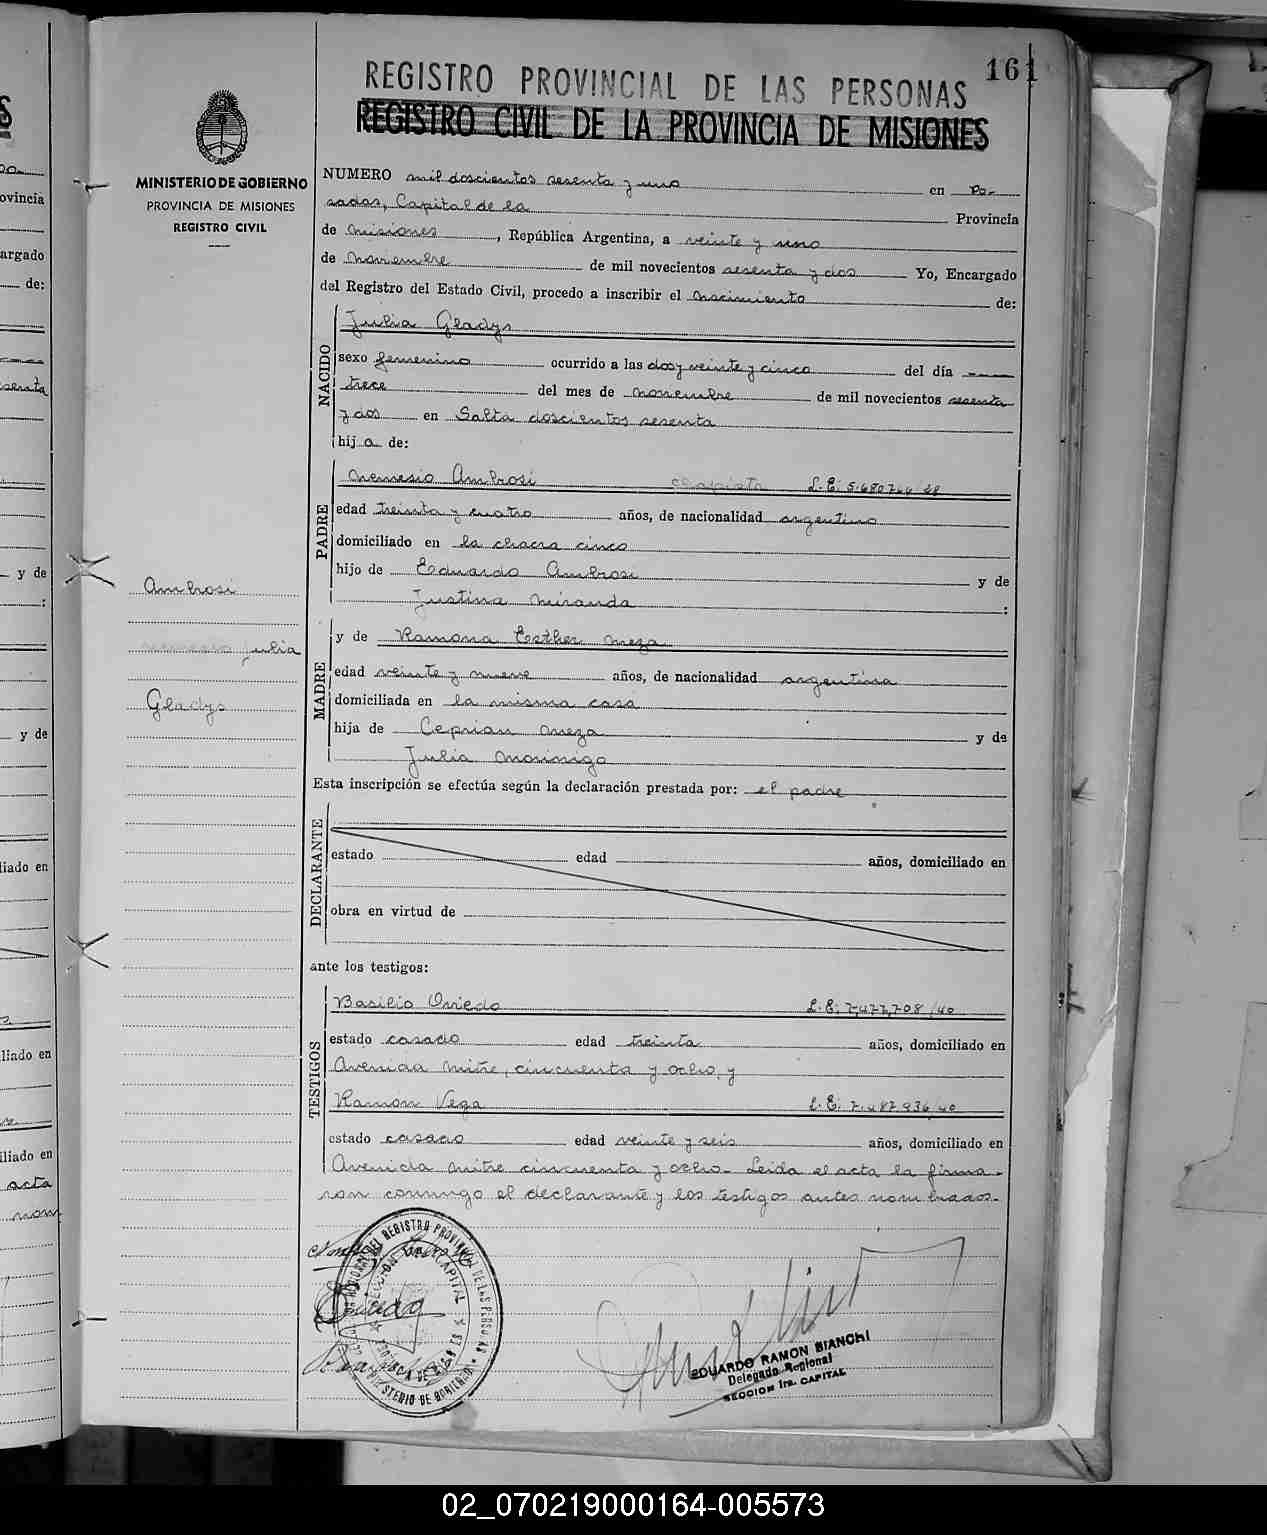 161
REGISTRO PROVINCIAL DE LAS PERSONAS
REGISTRO CIVIL DE LA PROVINCIA DE MISIONES
MINISTERIO DE GOBIERNO
PROVINCIA DE MISIONES
REGISTRO CIVIL
NUMERO mil doscientos sesenta y uno en Po-
sadas, Capital de la Provincia
de Misiones, República Argentina, a veinte y uno
de Noviembre de mil novecientos sesenta y dos Yo, Encargado
del Registro del Estado Civil, procedo a inscribir el nacimiento de:
NACIDO
Julia Gladys
sexo femenino ocurrido a las dos y veinte y cinco del día
trece del mes de noviembre de mil novecientos sesenta
y dos en Salta doscientos sesenta
hija de:
PADRE
Nemesio Ambrosi L.E. 5.680.7
edad treinta y cuatro años, de nacionalidad argentino
domiciliado en la chacra cinco
hijo de Eduardo Ambrosi y de
Justina Miranda :
MADRE
y de Ramona Esther Meza
edad veinte y nueve años, de nacionalidad argentina
domiciliada en la misma casa
hija de Ceprian Meza y de
Julia Morinigo
Esta inscripción se efectúa según la declaración prestada por: el padre
DECLARANTE
estado edad años, domiciliado en
obra en virtud de
ante los testigos:
TESTIGOS
Basilio Oviedo L.E. 7,477,708/40
estado casado edad treinta años, domiciliado en
Avenida Mitre, cincuenta y ocho, y
Ramon Vega L.E. 7.487.936/40
estado casado edad veinte y seis años, domiciliado en
Avenida Mitre cincuenta y ocho- Leida el acta la firma-
ron conmigo el declarante y los testigos antes nombrados-
Ambrosi
Julia
Gladys
EDUARDO RAMON BIANCHI
Delegado Regional
SECCION 1ra. CAPITAL
02_070219000164-005573